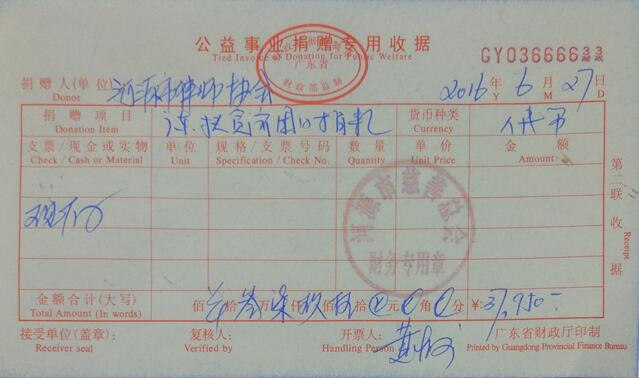 公益事业捐赠专用收据
Tied Invoice of Donation for Public Welfare
广东省
财政部监制
GY03666633
捐赠人(单位) 河源市律师协会 2016 年 6 月 27 日
Donor Y M D
捐赠项目 货币种类 人民币
Donation Item Currency
支票/现金或实物 单位 规格/支票号码 数量 单价 金额
Check / Cash or Material Unit Specification / Check No. Quantity Unit Price Amount
现金
河源市慈善总会
财务专用章
第二联收据
Receipt
金额合计(大写) 佰 拾叁万柒仟玖佰伍拾元 角 分 ¥:37,950-
Total Amount (In words)
接受单位(盖章): 复核人: 开票人: 广东省财政厅印制
Receiver seal Verified by Handling Person Printed by Guangdong Provincial Finance Bureau